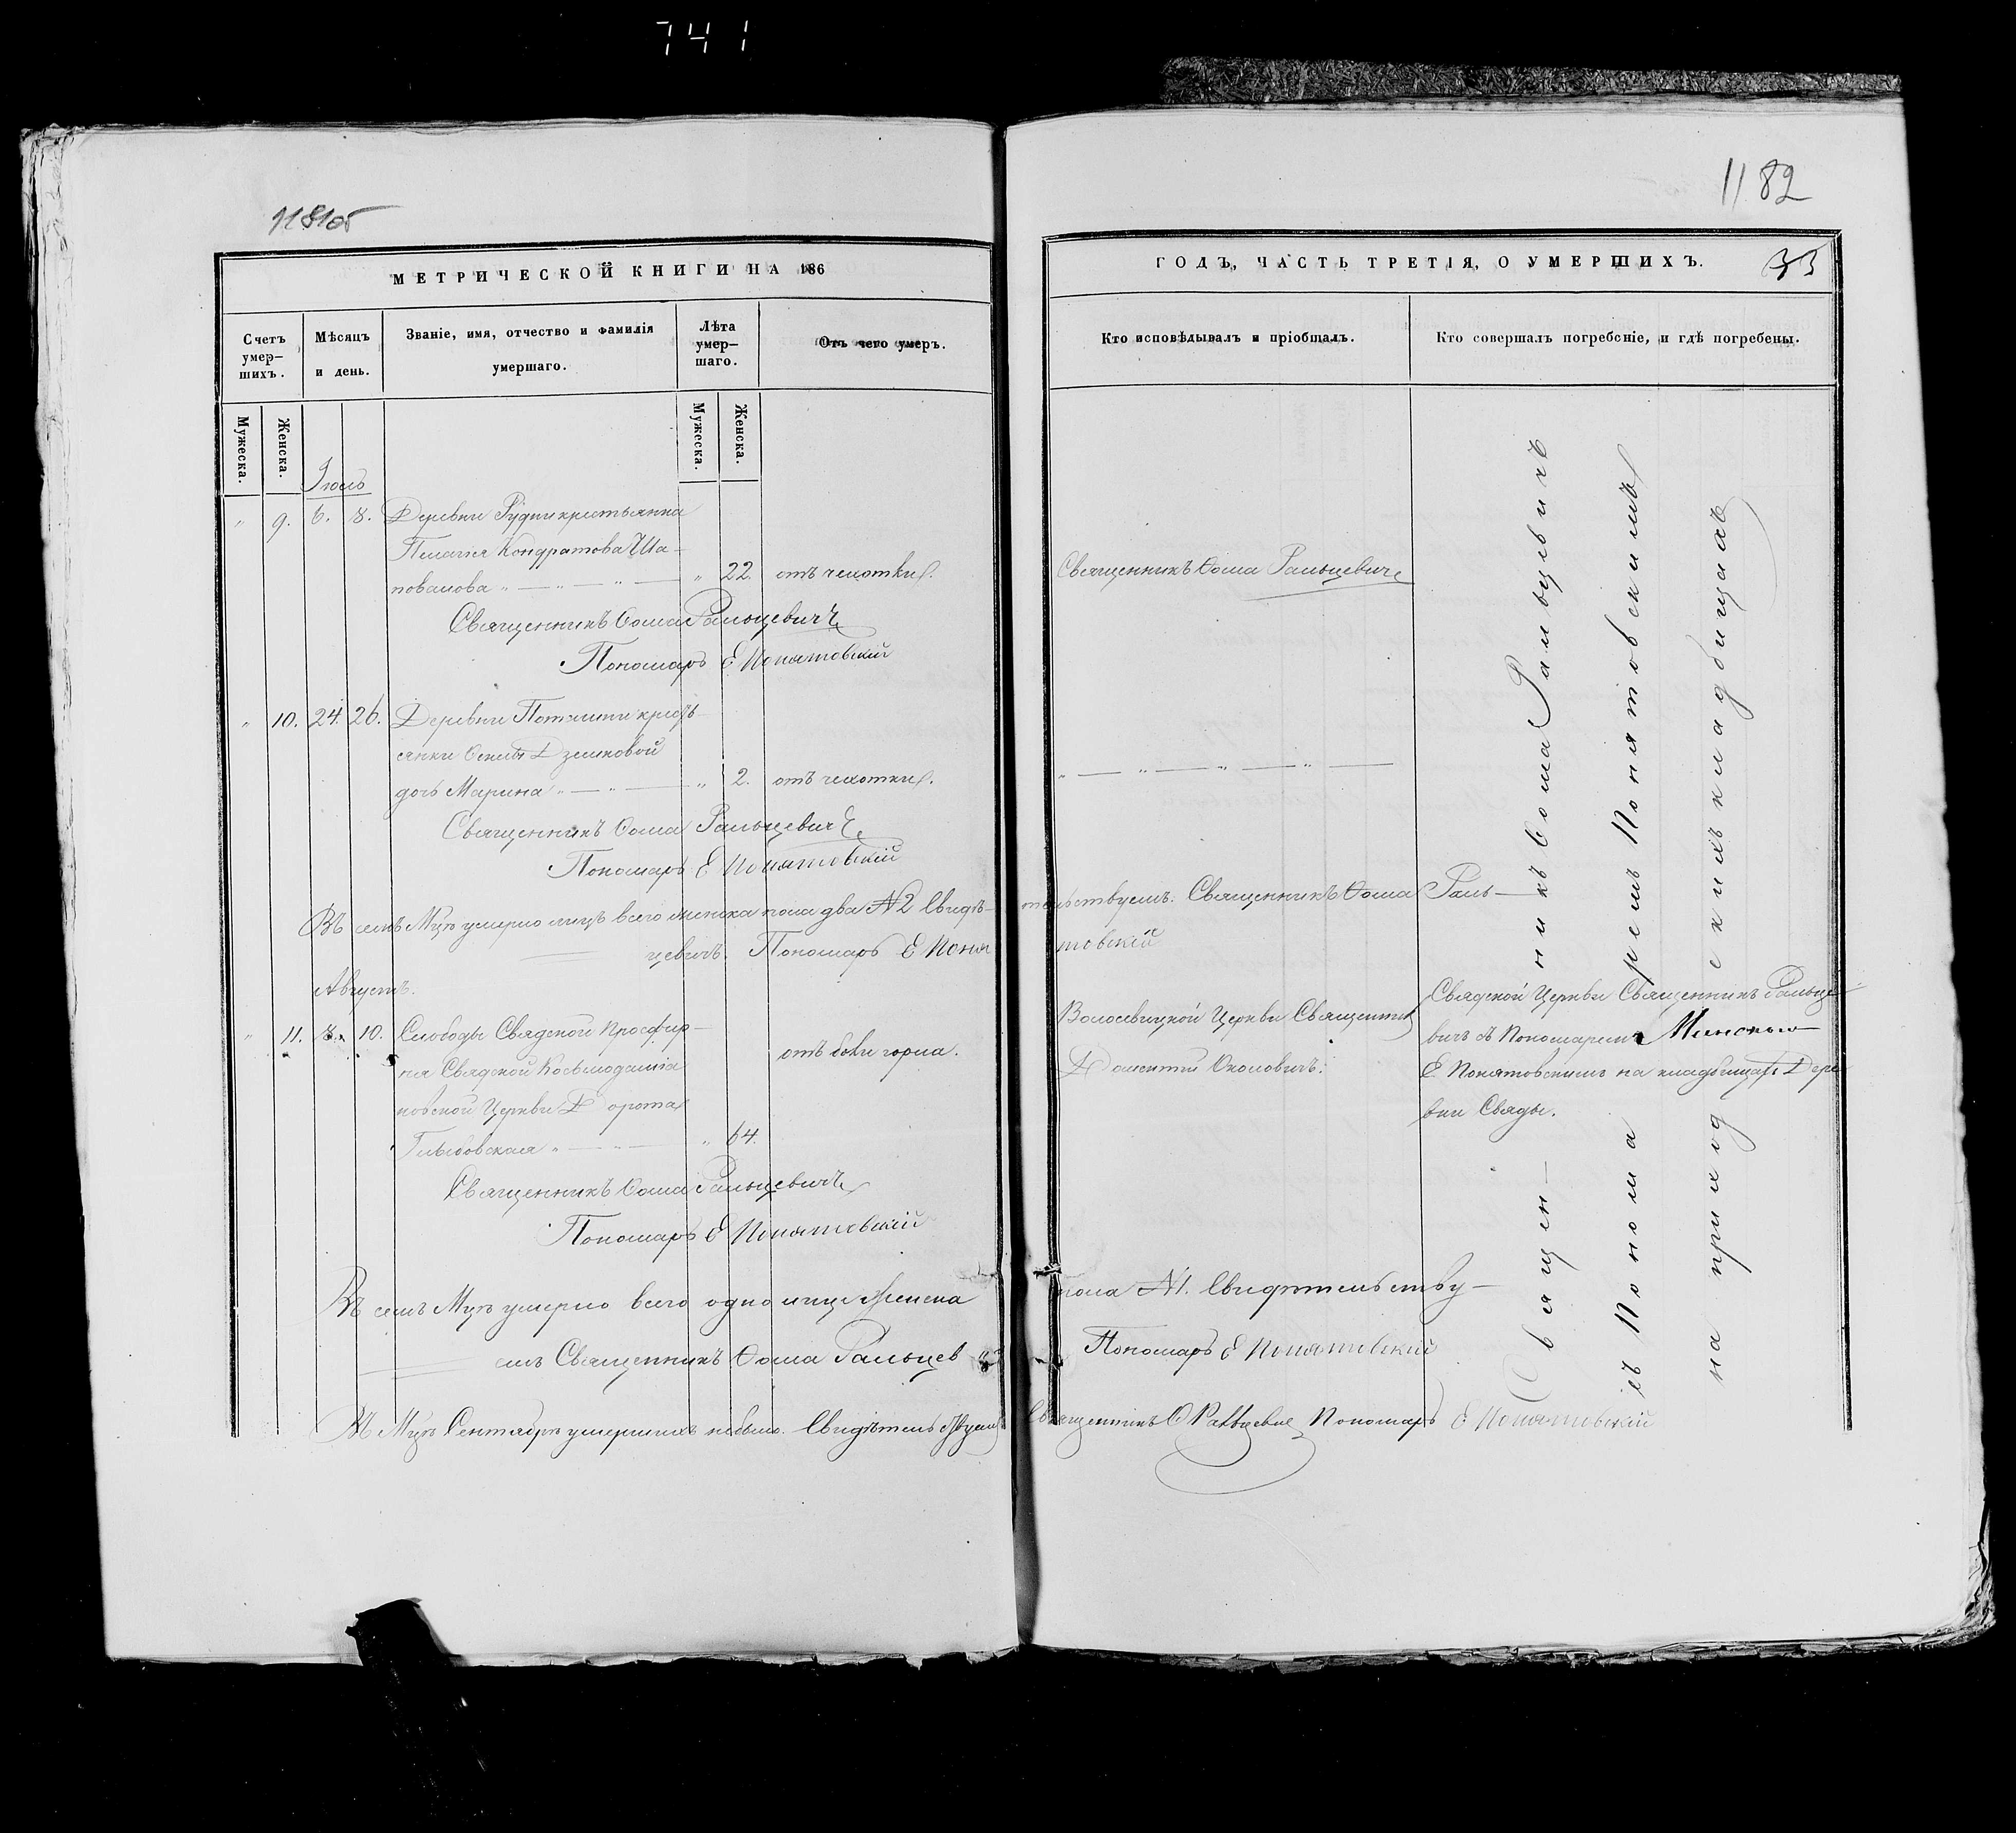 741
1181об
1182
МЕТРИЧЕСКОЙ КНИГИ НА 186
ГОДЪ, ЧАСТЬ ТРЕТІЯ, О УМЕРШИХЪ.
33
Счетъ умер-шихъ.
Мѣсяцъ и день.
Званіе, имя, отчество и фамилія умершаго.
Лѣта умер-шаго.
Отъ чего умеръ.
Кто исповѣдывалъ и пріобщалъ.
Кто совершалъ погребеніе, и гдѣ погребены.
Мужеска.
Женска.
Мужеска.
Женска.
Іюль
" 9. 6. 8. Деревни Рудни крестьянка
Пелагія Кондратова Ша-
повалова " — " — " — " 22. отъ чехотки.
Священникъ Ѳома Ральцевичъ
Священникъ Ѳома Ральцевичъ
Пономарь Е Понятовскій
" 10. 24. 26. Деревни Поташни крест-
янки
дочь Марина " — " — " 2. отъ чехотки.
" — " — " — " —
Священникъ Ѳома Ральцевичъ
Пономарь Е Понятовскій
Въ семъ Мцѣ умерло лицъ всего женска пола два №2 Свидѣ-
тельствуемъ. Священникъ Ѳома Раль-
цевичъ. Пономарь Е Поня
товскій
Августъ.
" 11. 8. 10. Слободы Свядской Просфир-
ня Свядской Косьмодаміа
новской Церкви Дорота
Глѣбовская " — " — " 64.
отъ боли горла.
Волосевицкой Церкви Священник
Доментій Околовичъ.
Свядской Церкви Священникъ Ральце-
вичъ съ Пономаремъ
Е. Понятовскимъ на кладбищѣ Дере
вни Свяды.
Священникъ Ѳома Ральцевичъ
Пономарь Е Понятовскій
Въ семъ Мцѣ умерло всего одно лице женска
пола №1. Свидѣтельству-
емъ Священникъ Ѳома Ральцев
Пономарь Е Понятовскій
Въ Мцѣ Сентябрѣ умершихъ небыло. Свидѣтельствуемъ
Священникъ Ѳ Ральцевичъ Пономарь Е Понятовскій
Священ-никъ Ѳома Ральцевичъ
съ Понома ремъ Понятовскимъ
на приход скихъ кладбищахъ